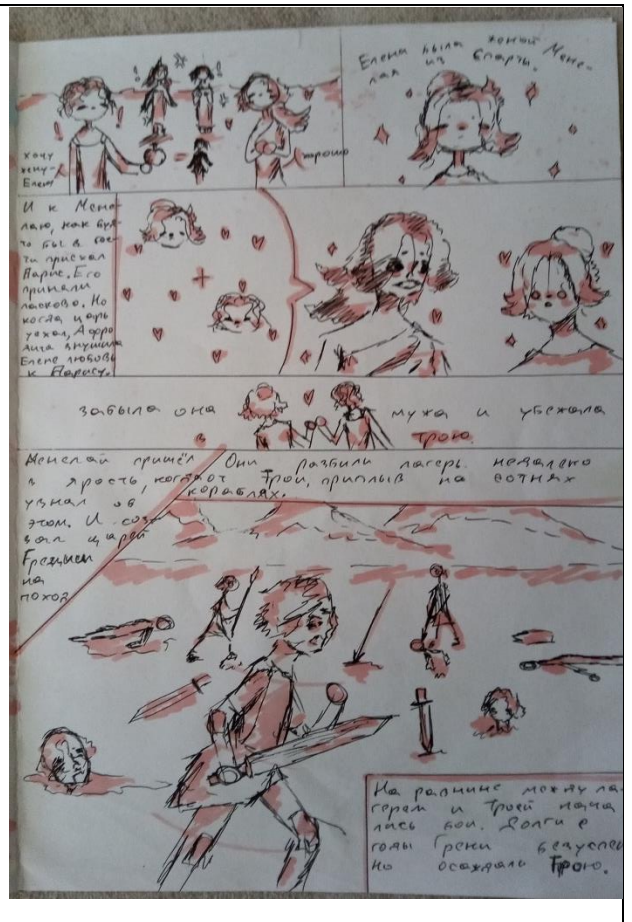 хочу
жену-
Елену
хорошо
Елена была женой Мене-
лая из Спарты.
И к Мене-
лаю, как буд-
то бы в гос-
ти приехал
Парис. Его
приняли
ласково. Но
когда царь
уехал, Афро-
дита внушила
Елене любовь
к Парису.
забыла она мужа и убежала
в Трою.
Менелай пришёл
в ярость, когда
узнал об
этом. И соз-
вал царей
Греции
на
поход
Они разбили лагерь недалеко
от Трои, приплыв на сотнях
кораблях.
На равнине между ла-
герем и Троей нача-
лись бои. Долгие
годы Греки безуспеш
но осаждали Трою.